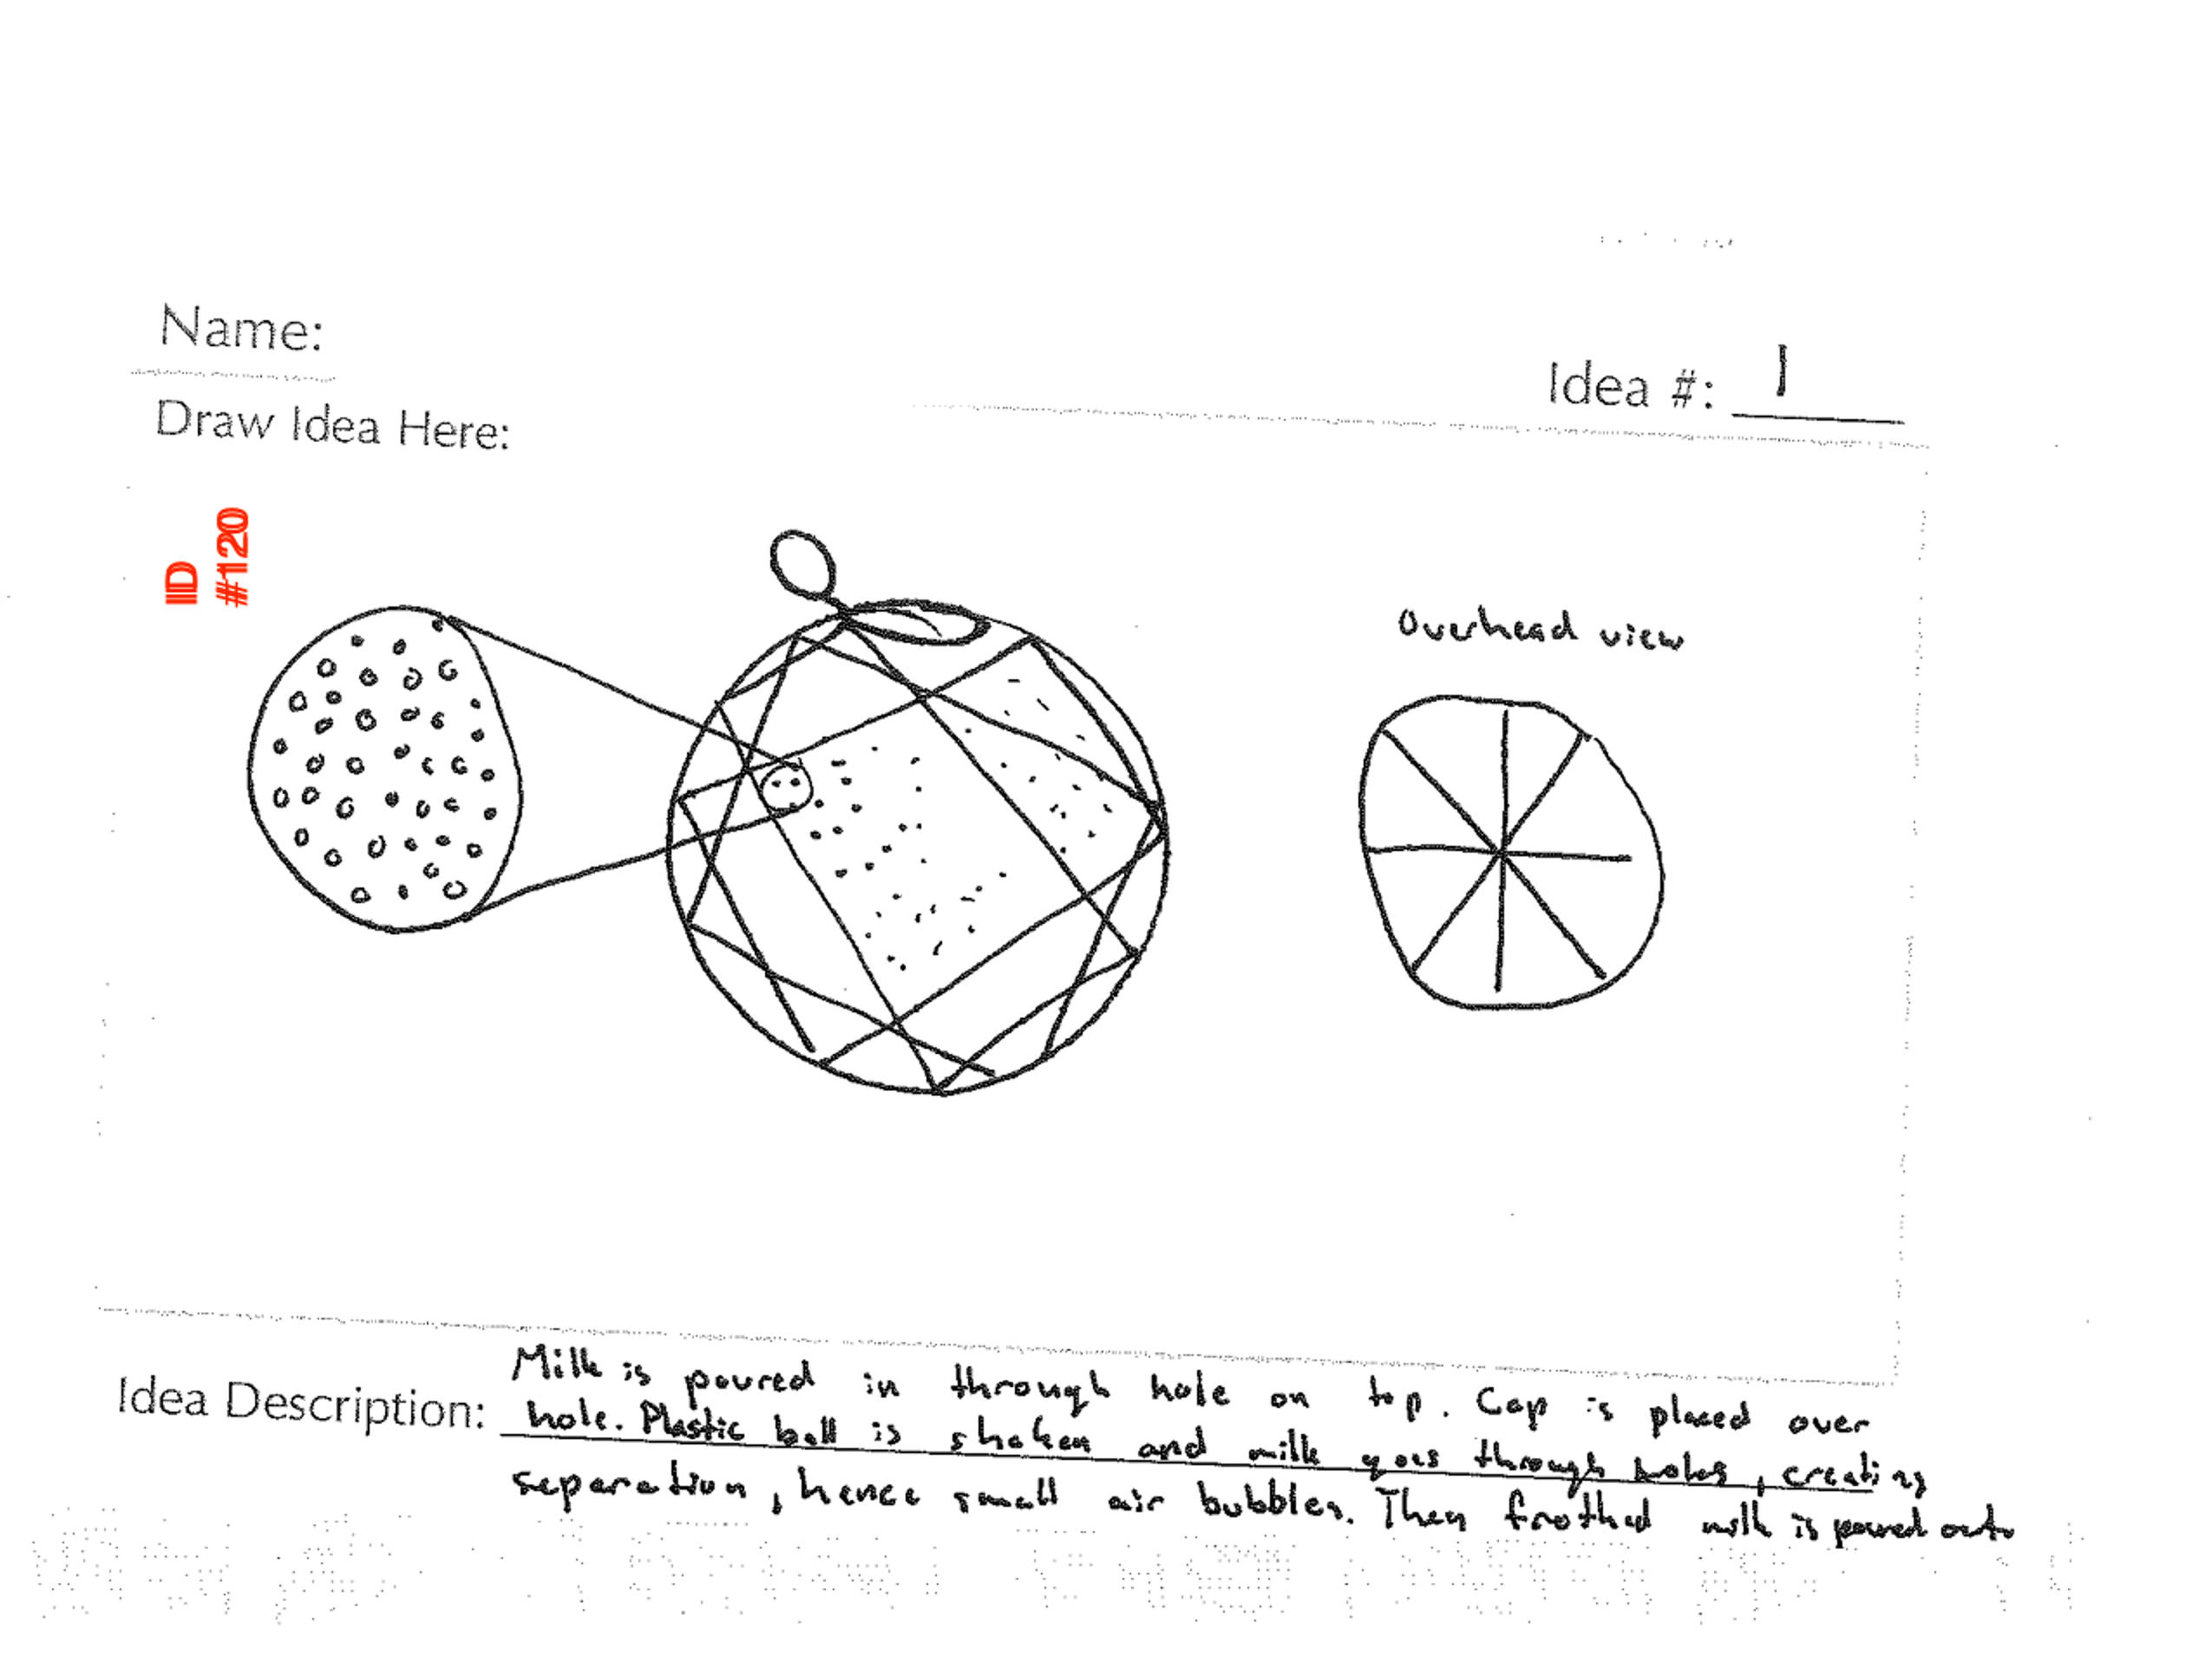 Name:
Idea #: 1
Draw Idea Here:
IID
#120
Overhead view
Milk is poured in through hole on top. Cap is placed over
Idea Description: hole. Plastic ball is shaken and milk goes through holes, creating
seperation, hence small air bubbles. Then frothed milk is poured out